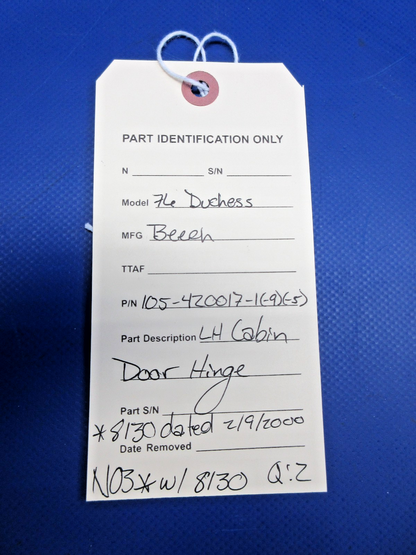 PART IDENTIFICATION ONLY
N ____________ S/N ____________
Model 76 Duchess
MFG Beech
TTAF ____________
P/N 105-420017-1(-9)(-5)
Part Description LH Cabin
Door Hinge
Part S/N ____________
*8130 dated 2/9/2000
Date Removed ____________
N03* w/ 8130 Q:2